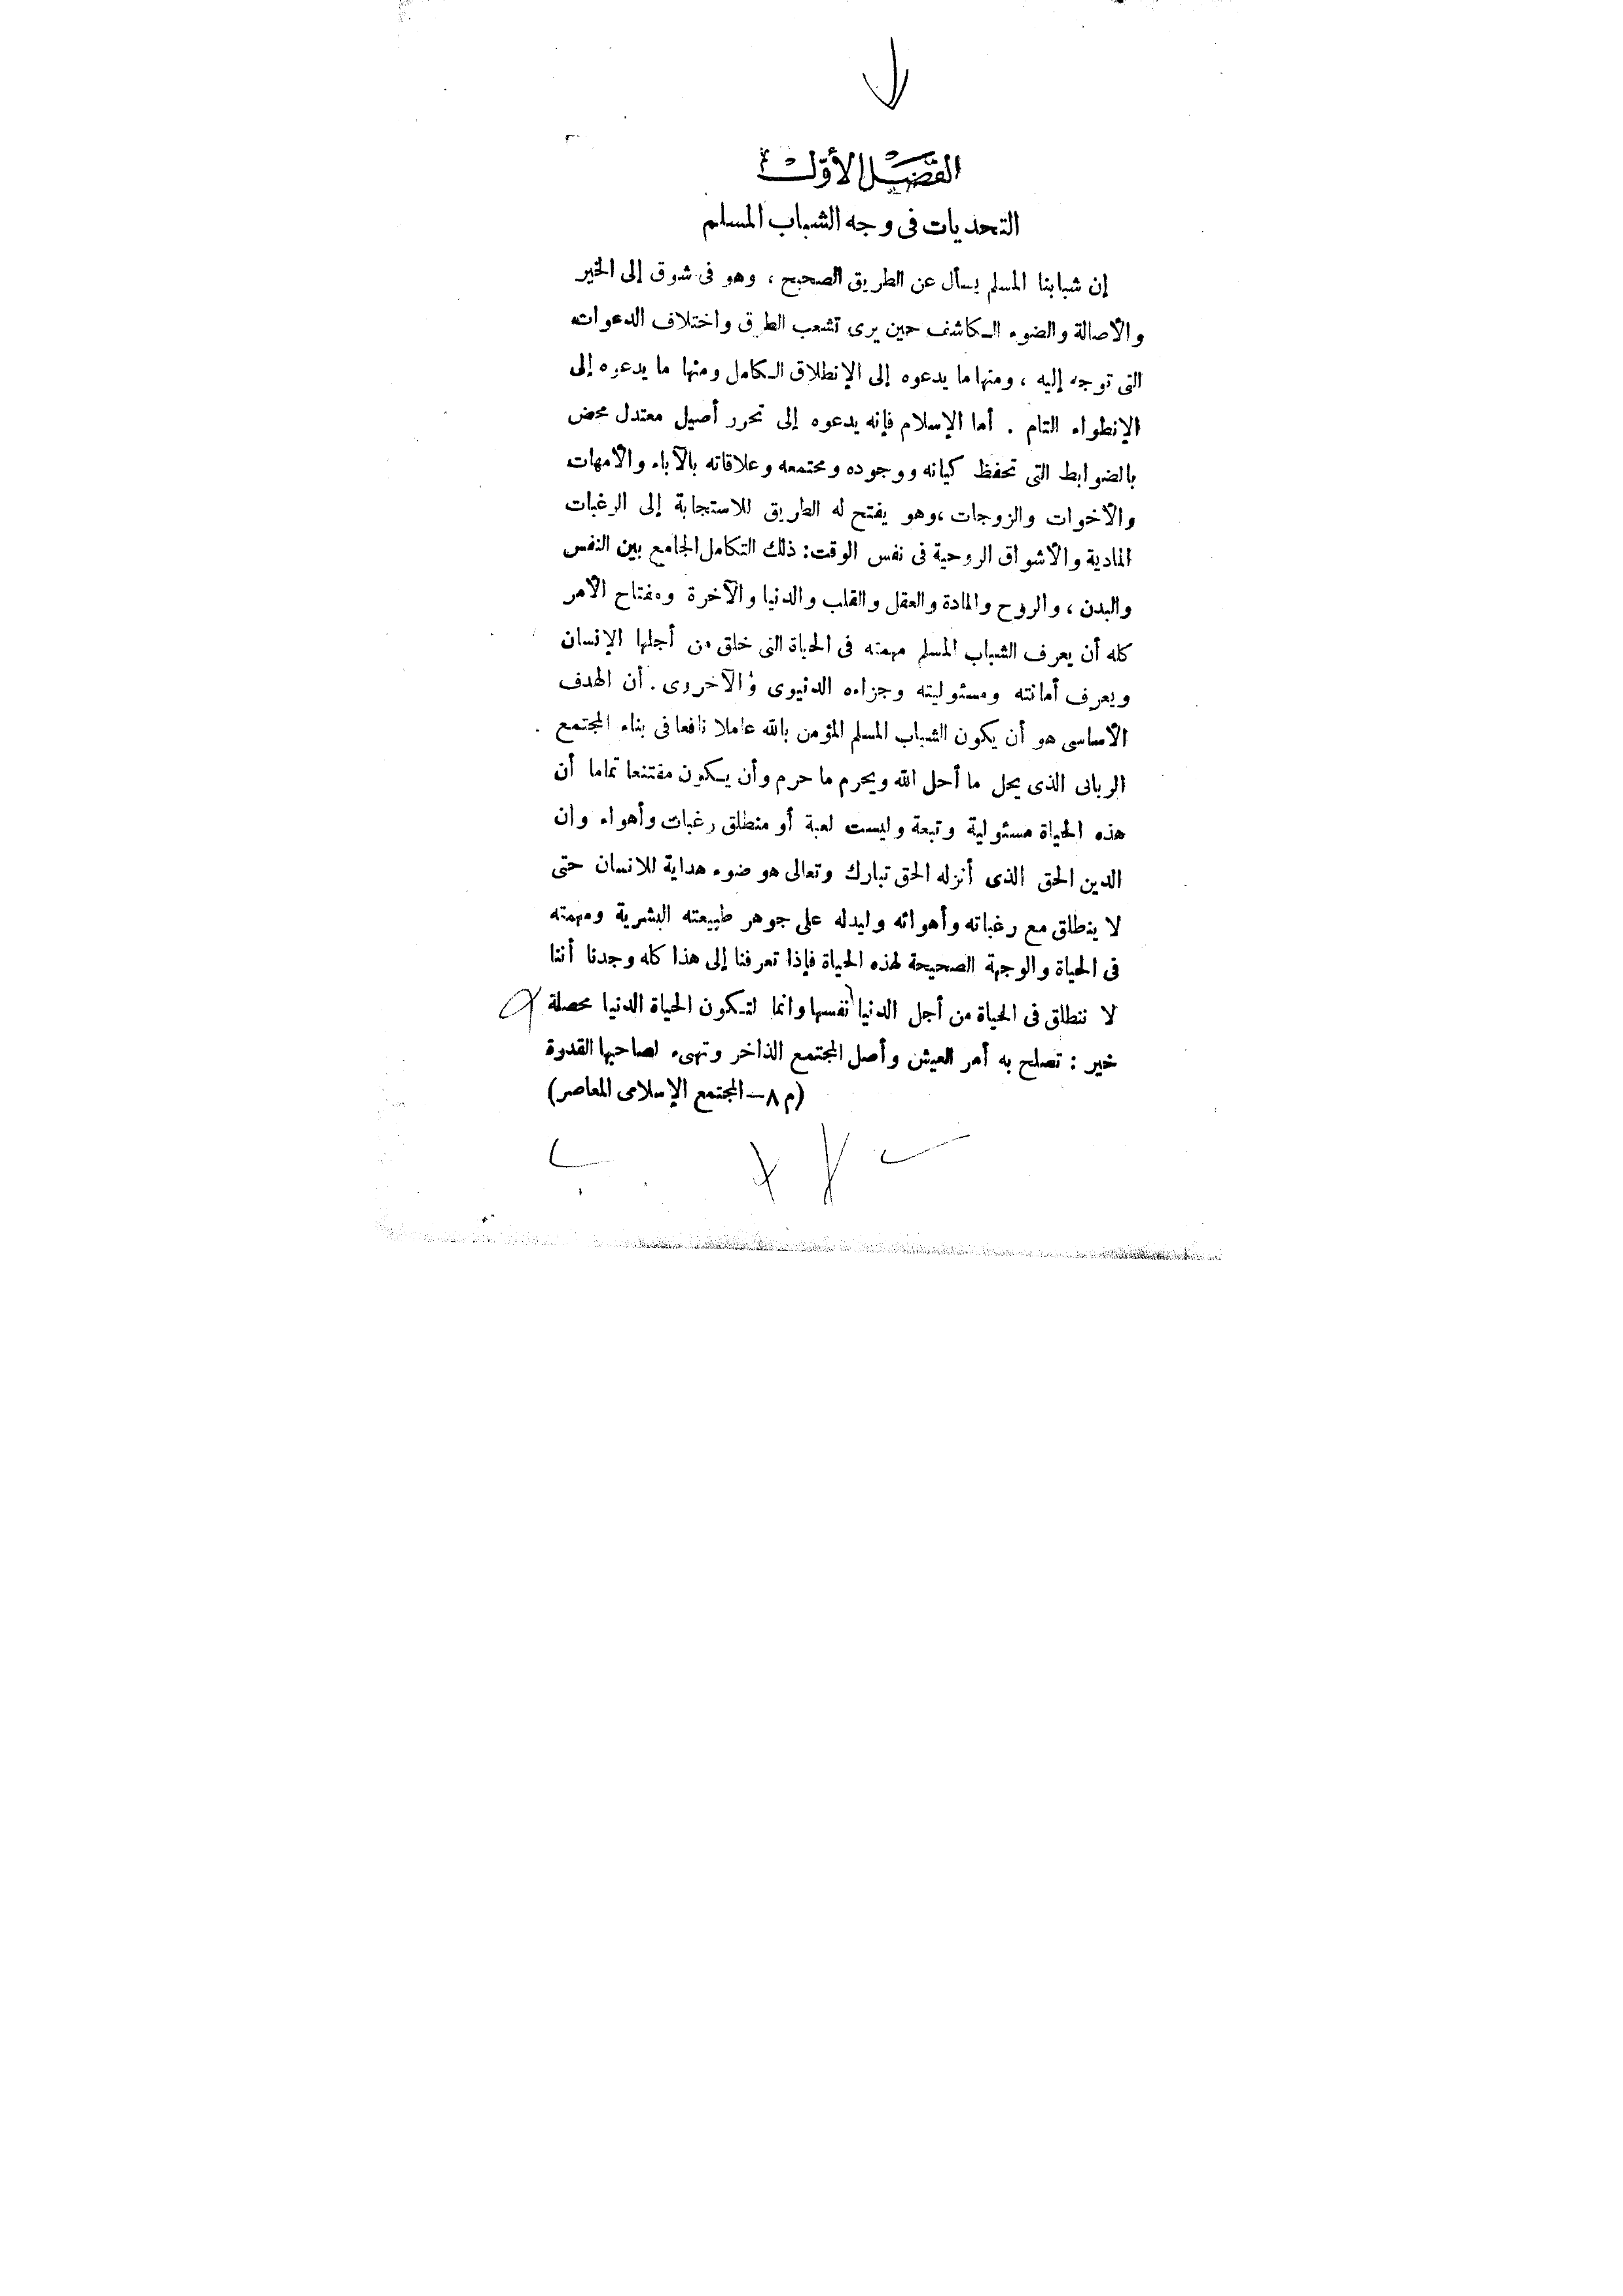 الفصل الأول
التحديات فى وجه الشباب المسلم
إن شبابنا المسلم يسأل عن الطريق الصحيح ، وهو فى شوق إلى الخير
والأصالة والضوء الكاشف حين يرى تشعب الطرق واختلاف الدعوات
التى توجه إليه ، ومنها ما يدعوه إلى الإنطلاق الكامل ومنها ما يدعوه إلى
الإنطواء التام . أما الإسلام فإنه يدعوه إلى تحرر أصيل معتدل محض
بالضوابط التى تحفظ كيانه ووجوده ومجتمعه وعلاقاته بالآباء والأمهات
والأخوات والزوجات ،وهو يفتح له الطريق للاستجابة إلى الرغبات
المادية والأشواق الروحية فى نفس الوقت: ذلك التكامل الجامع بين النفس
والبدن ، والروح والمادة والعقل والقلب والدنيا والآخرة ومفتاح الأمر
كله أن يعرف الشباب المسلم مهمته فى الحياة التى خلق من أجلها الإنسان
ويعرف أمانته ومسئوليته وجزاءه الدنيوى والآخروى . أن الهدف
الأساسى هو أن يكون الشباب المسلم المؤمن بالله عاملا نافعا فى بناء المجتمع
الربانى الذى يحل ما أحل الله ويحرم ما حرم وأن يكون مقتنعا تماما أن
هذه الحياة مسئولية وتبعة وليست لعبة أو منطلق رغبات وأهواء وان
الدين الحق الذى أنزله الحق تبارك وتعالى هو ضوء هداية للانسان حتى
لا ينطلق مع رغباته وأهوائه وليدله على جوهر طبيعته البشرية ومهمته
فى الحياة والوجهة الصحيحة لهذه الحياة فإذا تعرفنا إلى هذا كله وجدنا أننا
لا ننطلق فى الحياة من أجل الدنيا نفسها وانما لتكون الحياة الدنيا محصلة
خير : تصلح به أمر العيش وأصل المجتمع الذاخر وتهىء لصاحبها القدرة
(م ٨ – المجتمع الإسلامى المعاصر)